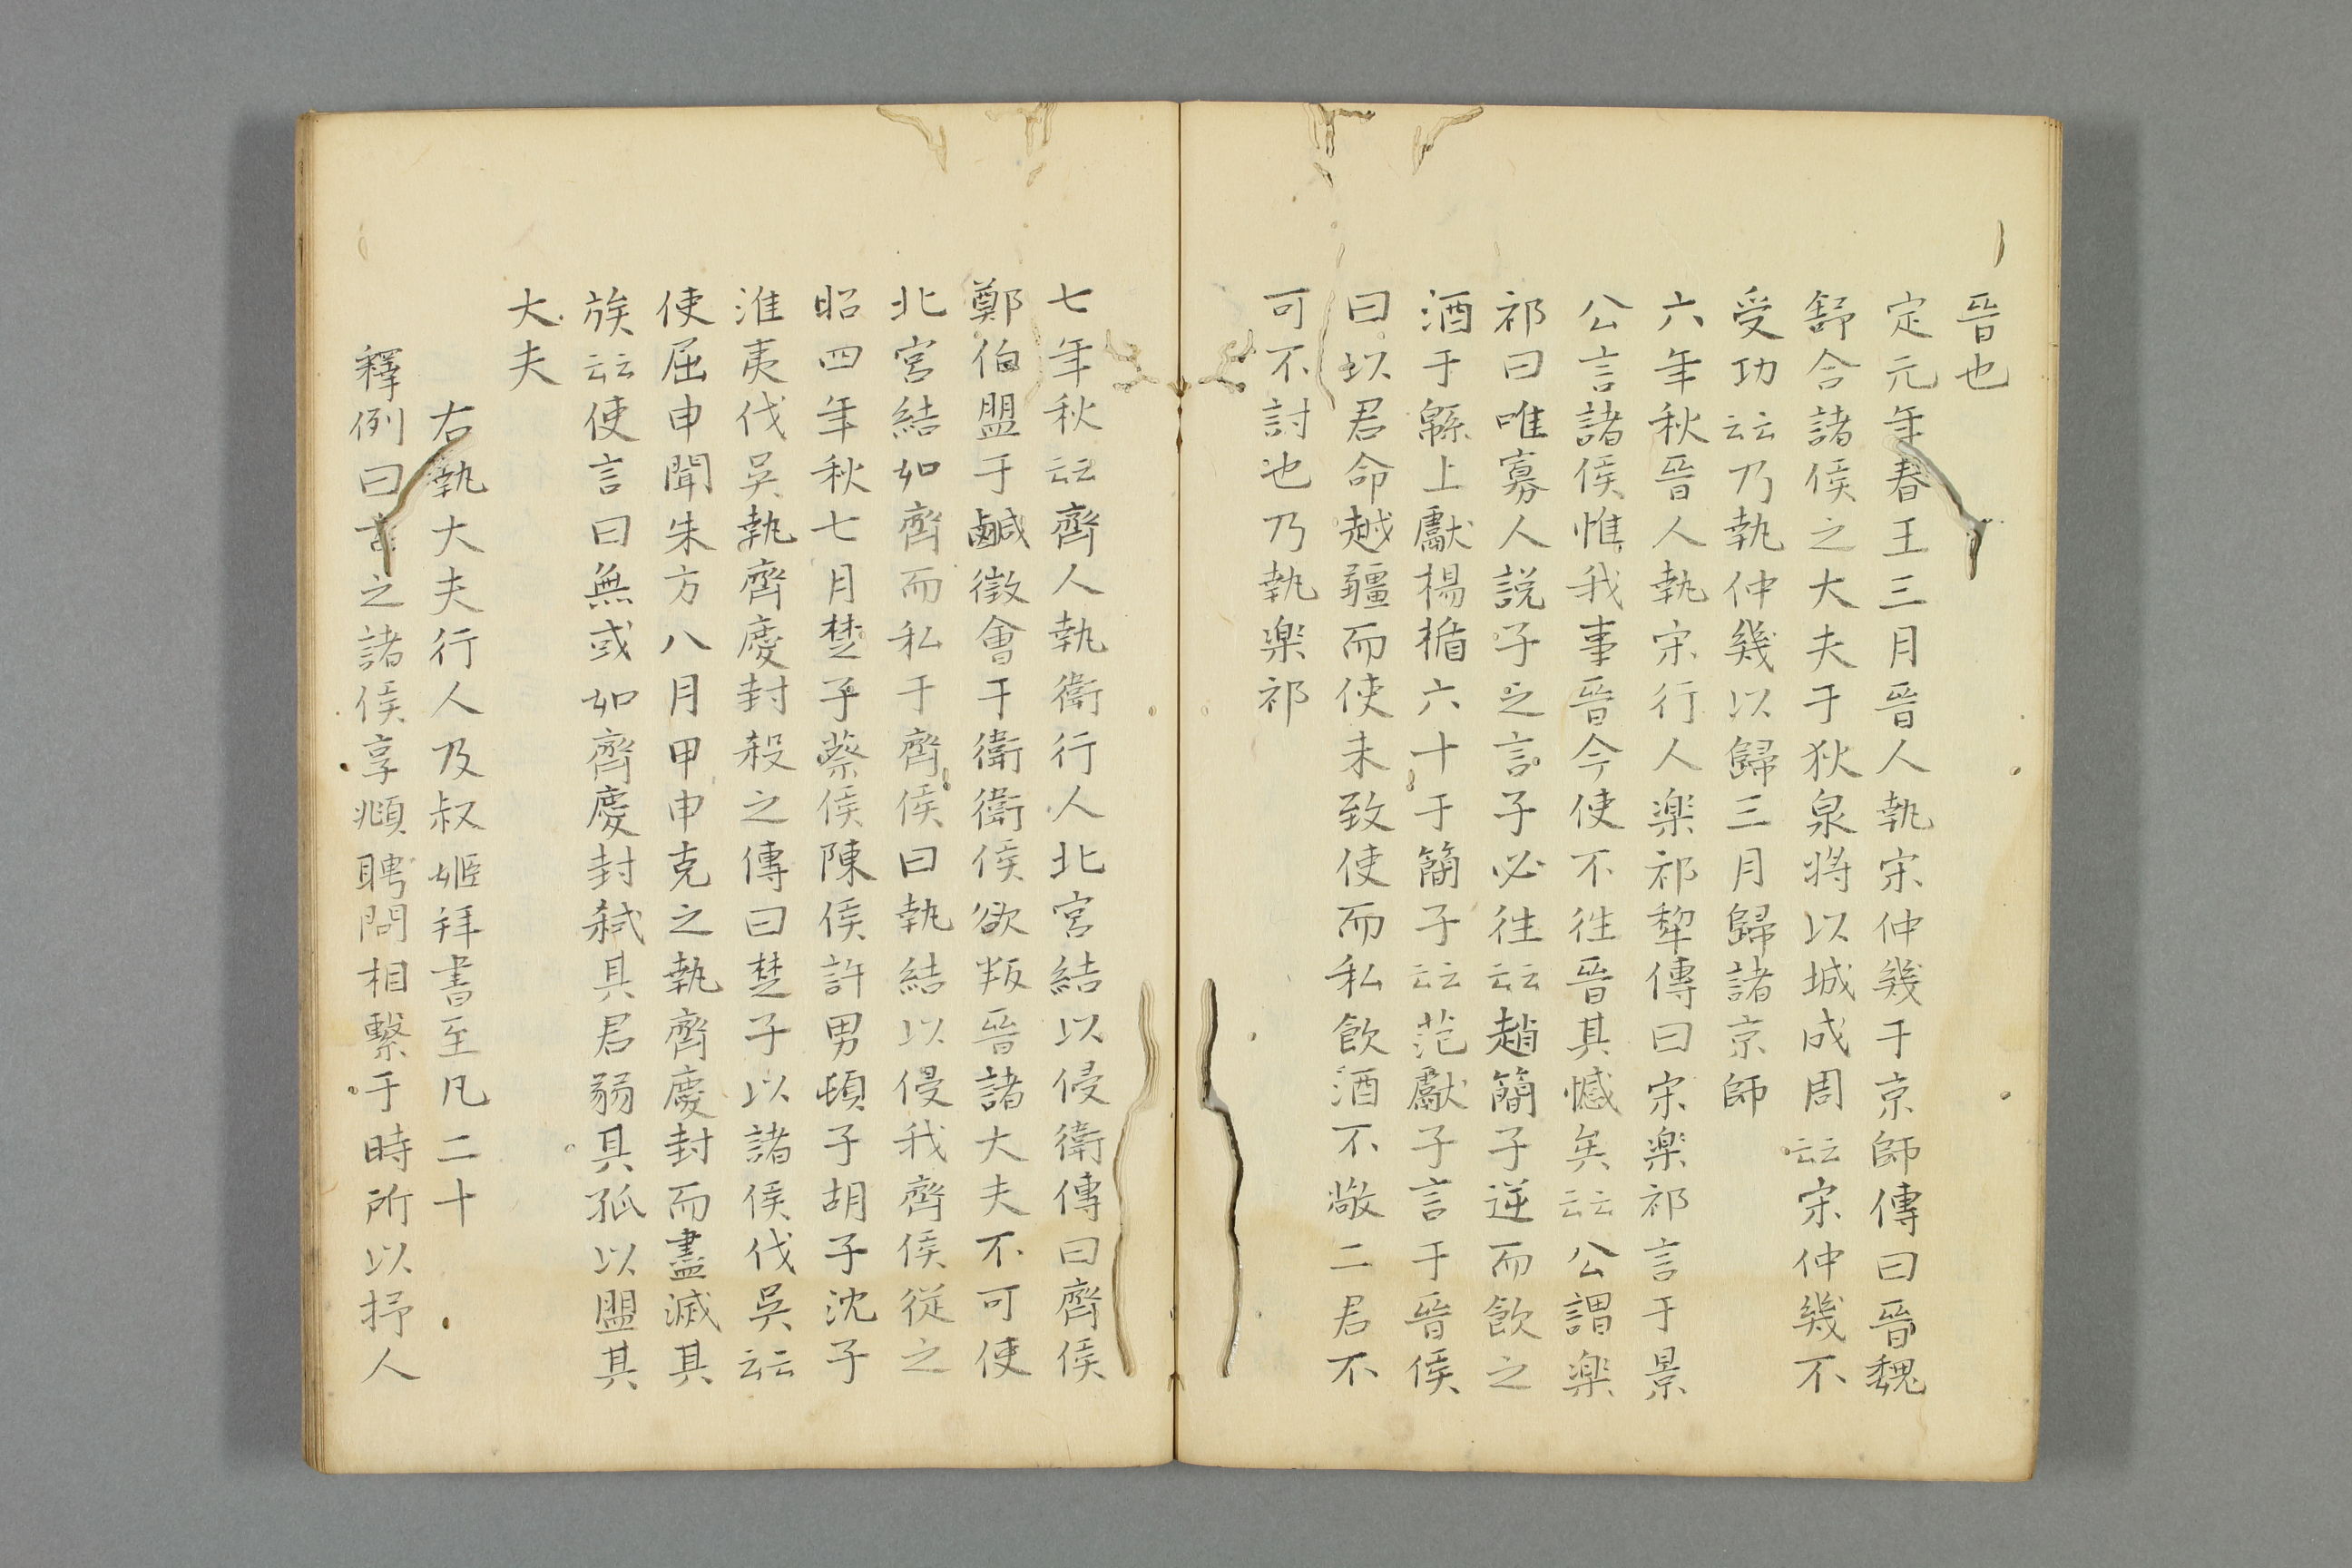 晉也
定元年春王三月晉人執宋仲幾于京師傳曰晉魏
舒合諸侯之大夫于狄泉將以城成周云云宋仲幾不
受功云云乃執仲幾以歸三月歸諸京師
六年秋晉人執宋行人楽祁犂傳曰宋楽祁言于景
公言諸侯惟我事晉今使不往晉其憾矣云云公謂楽
祁曰唯寡人説子之言子必往云云趙簡子逆而飲之
酒于緜上獻楊楯六十于簡子云云范獻子言于晉侯
曰以君命越疆而使未致使而私飲酒不敬二君不
可不討也乃執楽祁
七年秋云云齊人執衛行人北宮結以侵衛傳曰齊侯
鄭伯盟于鹹徵會于衛衛侯欲叛晉諸大夫不可使
北宮結如齊而私于齊侯曰執結以侵我齊侯從之
昭四年秋七月楚子蔡侯陳侯許男頓子胡子沈子
淮夷伐吳執齊慶封殺之傳曰楚子以諸侯伐吳云云
使屈申聞朱方八月甲申克之執齊慶封而盡滅其
族云云使言曰無或如齊慶封弑其君弱其孤以盟其
大夫
右執大夫行人及叔姬拜書至凡二十
釋例曰之諸侯享頫聘問相繫于時所以抒人